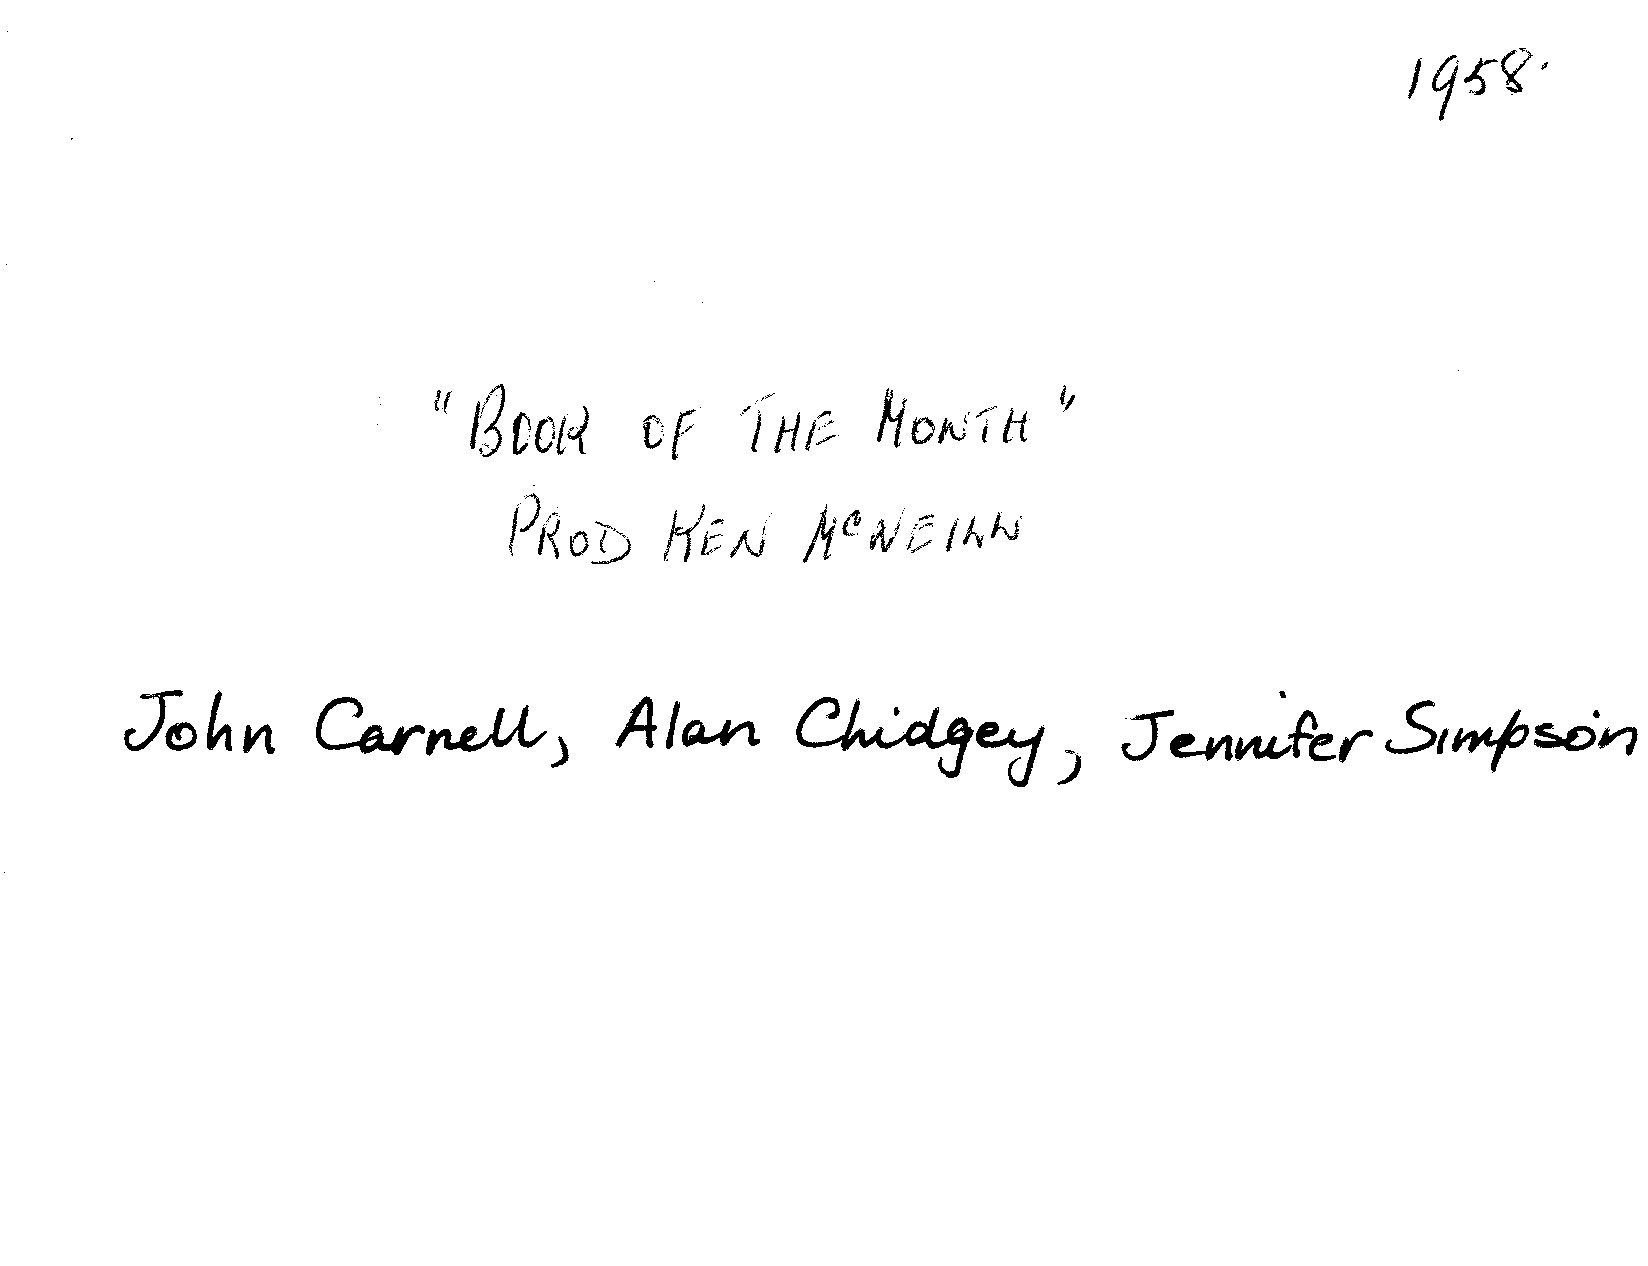 1958.
"BOOK OF THE MONTH"
PROD KEN McNEILL
John Carnell, Alan Chidgey, Jennifer Simpson